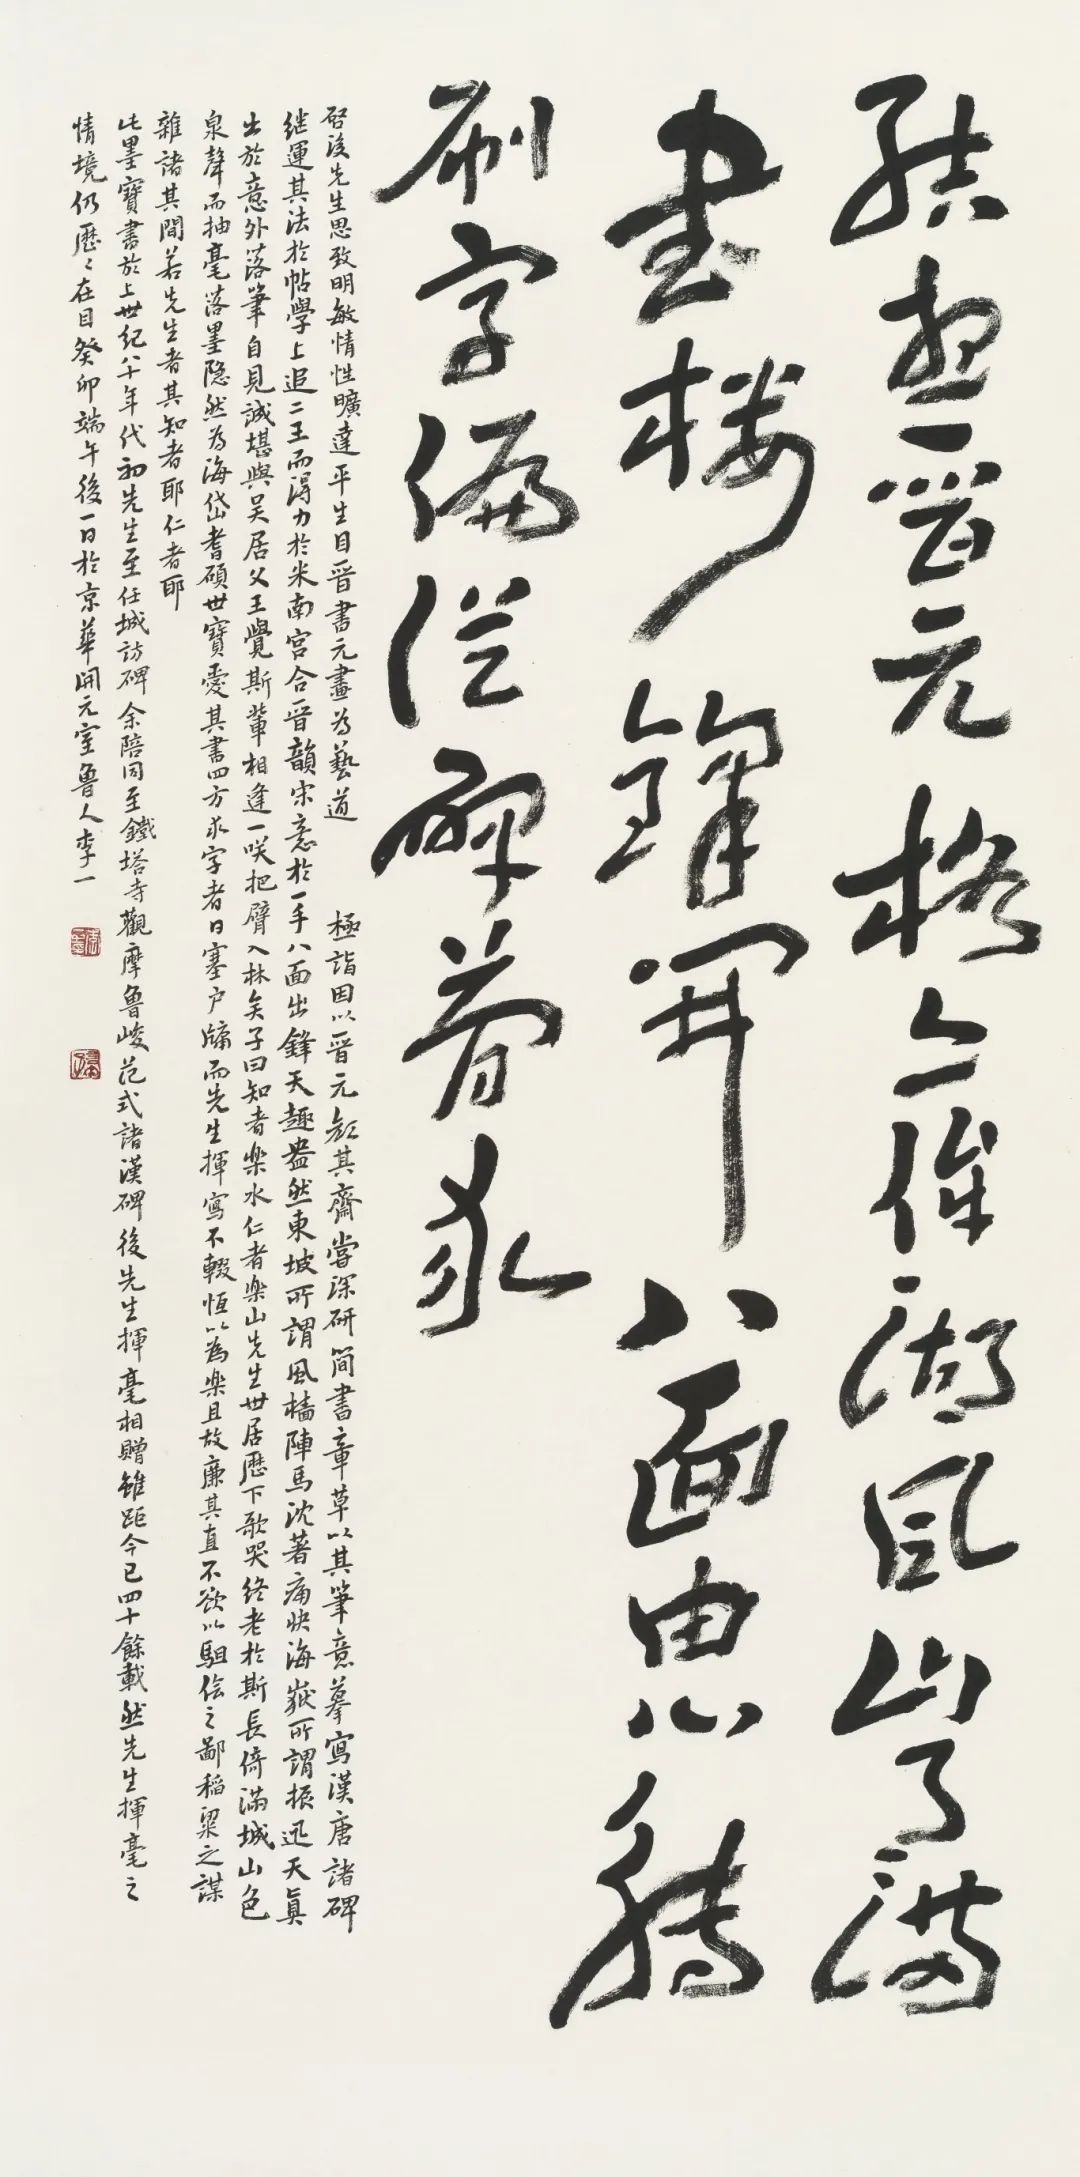 思晉元格侔湖風山滿
書楼鋒開八面由心轉
刷字偏從碑前求
啓後先生思致明敏情性曠達平生目晉書元畫為藝道極詣因以晉元顔其齋嘗深研簡書章草以其筆意摹寫漢唐諸碑
继運其法於帖學上追二王而得力於米南宮合晉韻宋意於一手八面出鋒天趣盎然東坡所謂風檣陣馬沈著痛快海嶽所謂振迅天真
出於意外落筆自見誠堪與吴居父王覺斯輩相逢一咲把臂入林矣子曰知者樂水仁者樂山先生世居歷下歌哭終老於斯長倚滿城山色
泉聲而抽毫落墨隐然為海岱耆碩世寶愛其書四方求字者日塞户牖而先生揮寫不輟恒以為樂且故廉其直不欲以駔儈之鄙稻粱之謀
雜諸其間若先生者其知者耶仁者耶
此墨寶書於上世纪八十年代初先生至任城訪碑余陪同至鐵塔寺觀摩魯峻范式諸漢碑後先生揮毫相贈雖距今已四十餘載然先生揮毫之
情境仍歷々在目癸卯端午後一日於京華開元室魯人李一